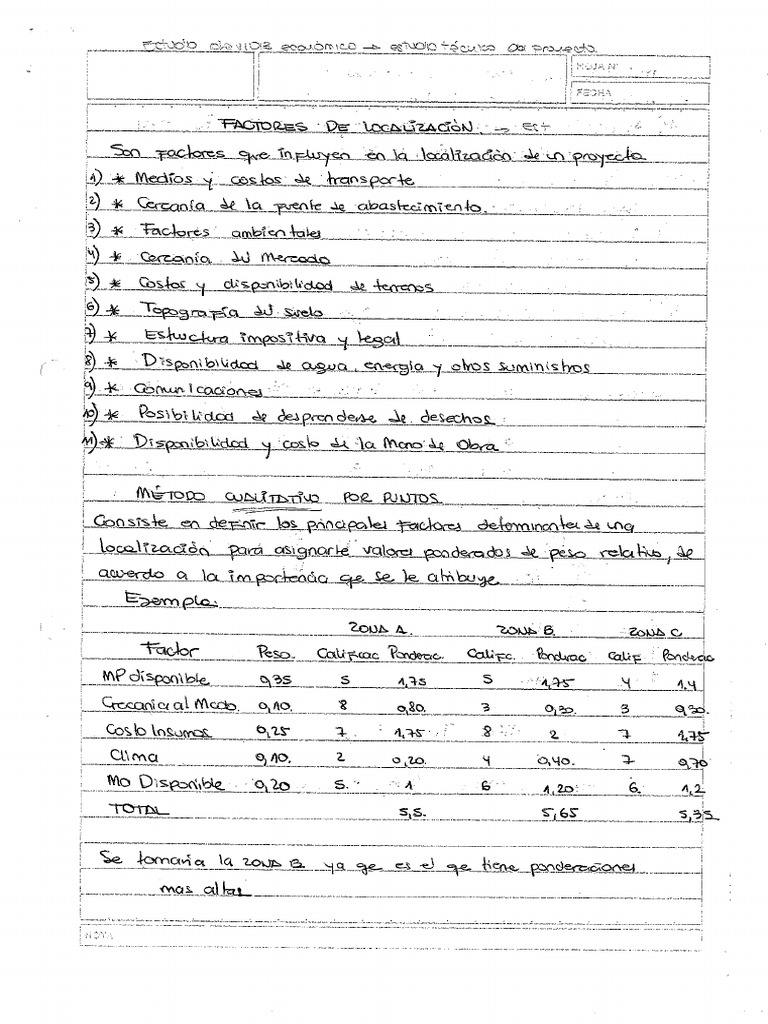 Estudio de viab económico → estudio técnico del proyecto
HOJA Nº
FECHA
FACTORES DE LOCALIZACIÓN. → Est
Son factores que influyen en la localización de un proyecto
1) * Medios y costos de transporte
2) * Cercanía de la fuente de abastecimiento.
3) * Factores ambientales
4) * Cercanía del Mercado
5) * Costos y disponibilidad de terrenos
6) * Topografía del suelo
7) * Estructura impositiva y legal
8) * Disponibilidad de agua, energía y otros suministros
9) * Comunicaciones
10) * Posibilidad de desprenderse de desechos
11) * Disponibilidad y costo de la Mano de Obra
MÉTODO CUALITATIVO POR PUNTOS.
Consiste en definir los principales factores determinantes de una
localización para asignarle valores ponderados de peso relativo, de
acuerdo a la importancia qe se le atribuye
Ejemplo:
ZONA A. ZONA B. ZONA C.
Factor Peso. Calificac Ponderac. Califc. Ponderac Calif Ponderac
MP disponible 0,35 5 1,75 5 1,75 4 1.4
Cercania al Mcdo. 0,10 8 0,80. 3 0,30 3 0,30
Costo Insumos 0,25 7 1,75 8 2 7 1,75
Clima 0,10. 2 0,20 4 0,40. 7 0,70
MO Disponible 0,20 5. 1 6 1,20 6. 1,2
TOTAL 5,5. 5,65 5,35
Se tomaria la ZONA B ya qe es el qe tiene ponderaciones
mas altas
NOTA